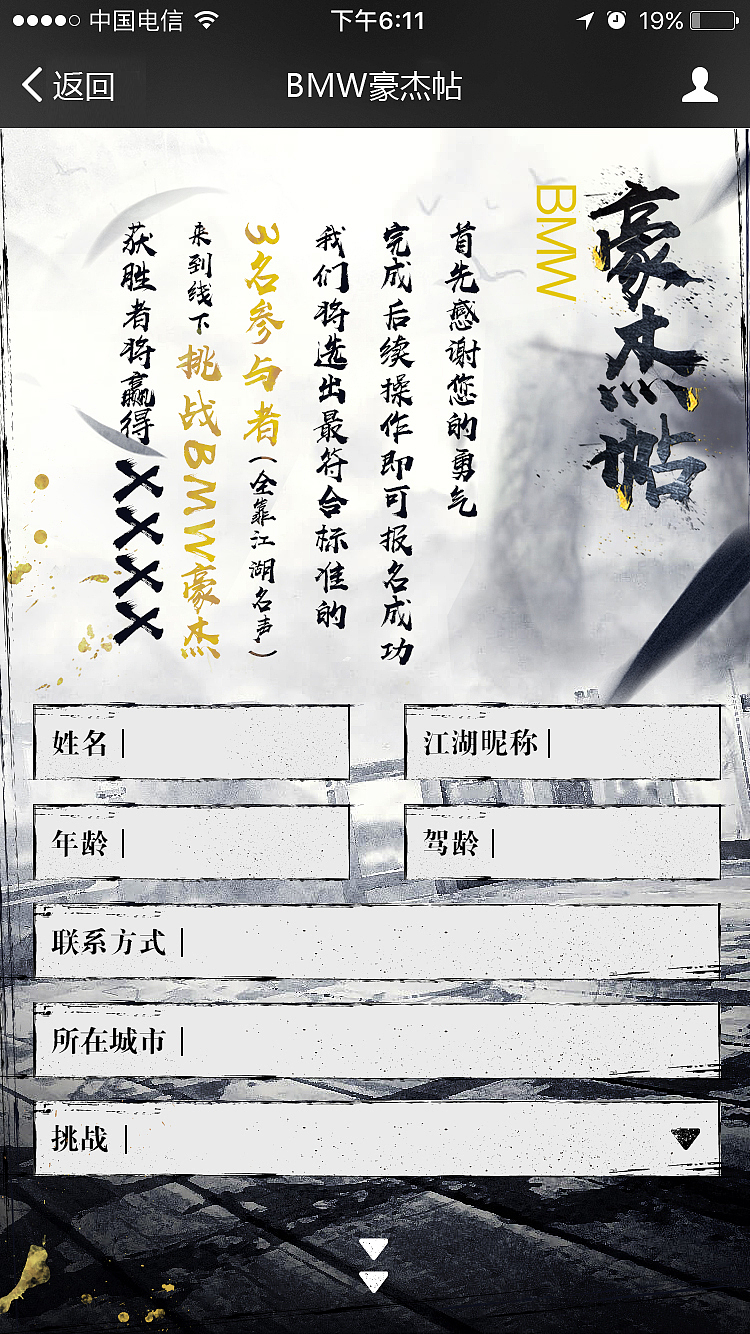 中国电信
下午6:11
19%
返回
BMW豪杰帖
豪杰帖
BMW
首先感谢您的勇气
完成后续操作即可报名成功
我们将选出最符合标准的
3名参与者(全靠江湖名声)
来到线下挑战BMW豪杰
获胜者将赢得××××
姓名
江湖昵称
年龄
驾龄
联系方式
所在城市
挑战